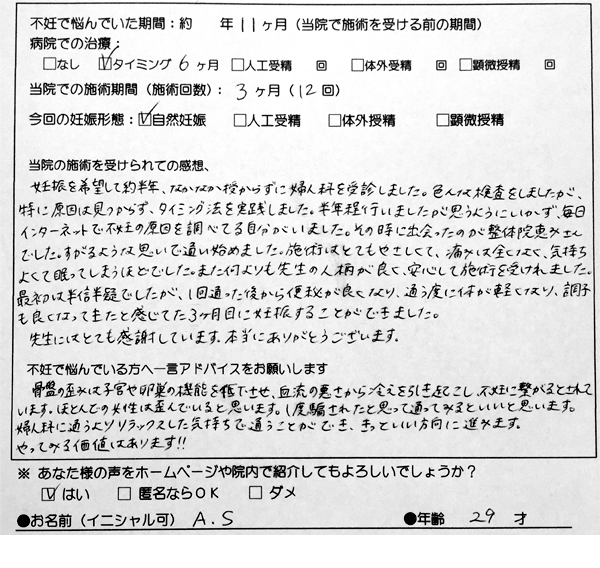 不妊で悩んでいた期間：約　　年11ヶ月（当院で施術を受ける前の期間）
病院での治療：
□なし　☑タイミング 6ヶ月　□人工受精　　回　□体外受精　　回　□顕微授精　　回
当院での施術期間（施術回数）： 3ヶ月（12回）
今回の妊娠形態：☑自然妊娠　□人工受精　□体外授精　□顕微授精
当院の施術を受けられての感想、
妊娠を希望して約半年、なかなか授からずに婦人科を受診しました。色んな検査をしましたが、
特に原因は見つからず、タイミング法を実践しました。半年程行いましたが思うようにいかず、毎日
インターネットで不妊の原因を調べてる自分がいました。その時に出会ったのが整体院恵みさん
でした。すがるような思いで通い始めました。施術はとてもやさしくて、痛みは全くなく、気持ち
よくて眠ってしまうほどでした。また何よりも先生の人柄が良く、安心して施術を受けれました。
最初は半信半疑でしたが、1回通った後から便秘が良くなり、通う度に体が軽くなり、調子
も良くなってきたと感じてた3ヶ月目に妊娠することができました。
先生にはとても感謝しています。本当にありがとうございます。
不妊で悩んでいる方へ一言アドバイスをお願いします
骨盤の歪みは子宮や卵巣の機能を低下させ、血流の悪さから冷えを引き起こし、不妊に繋がるとされて
います。ほとんどの女性は歪んでいると思います。1度騙されたと思って通ってみるといいと思います。
婦人科に通うよりリラックスした気持ちで通うことができ、きっといい方向に進みます。
やってみる価値はあります!!
※ あなた様の声をホームページや院内で紹介してもよろしいでしょうか？
☑はい　□匿名ならOK　□ダメ
●お名前（イニシャル可） A.S　●年齢 29 才